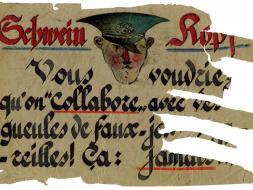 Schwein Kopf
Vous voudriez
qu'on "collabore" avec des
gueules de faux-je
-reilles! Ça: jamais